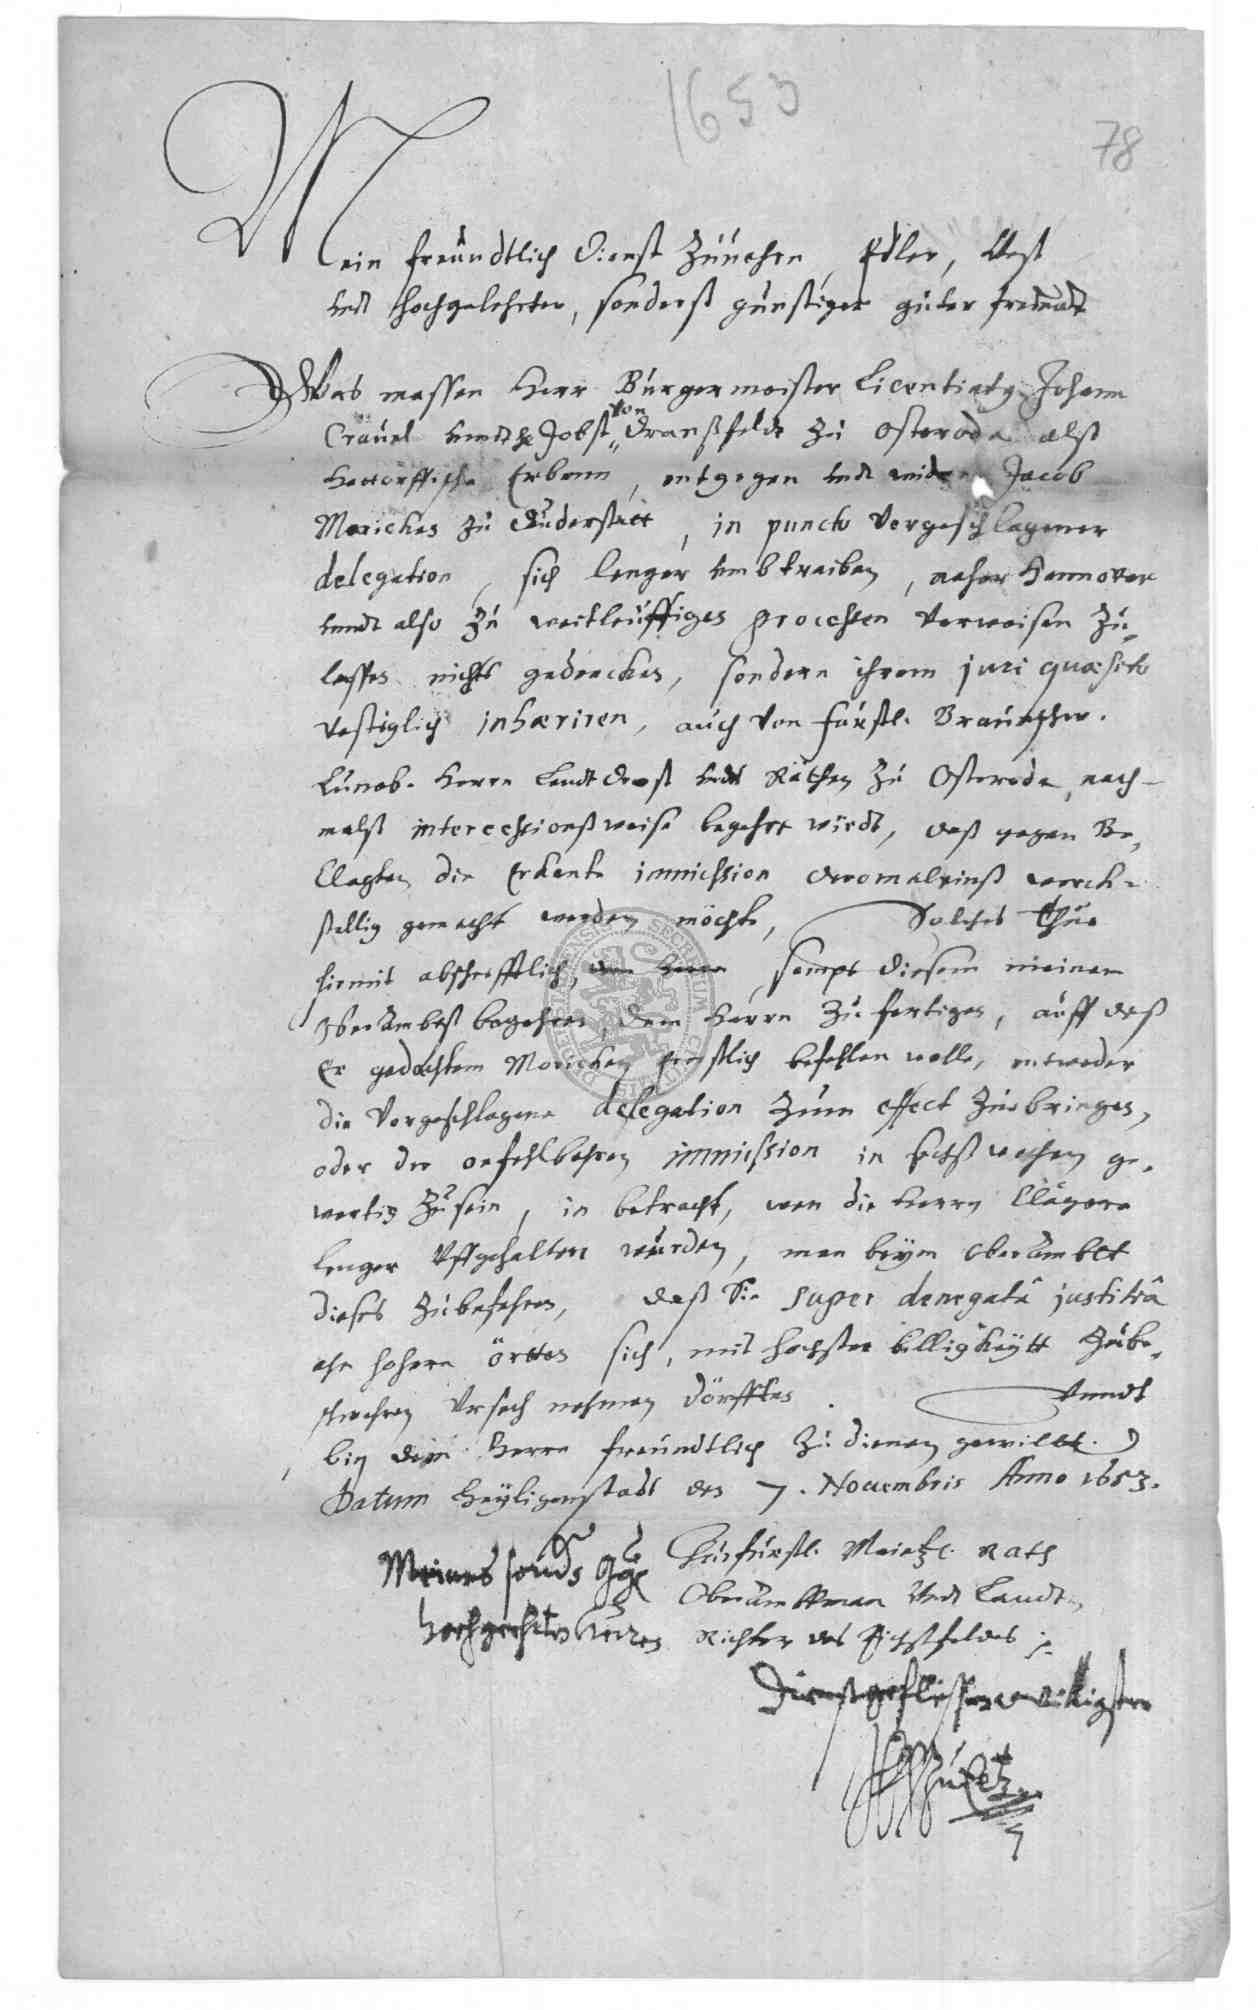 1653
78
Mein freundtlich Dienst zuuohrn, Edler, Vest
undt hochgelehrter, sonderß günstiger guter freundt
Was massen Herr Bürgermeister Licentiatus Johann
Crauel undt Jobst von Dranßfeldt zu Osteroda alß
Erbenn, entgegen undt wider Jacob
Morichen zu Duderstatt, in puncto Vorgeschlagener
delegation, sich lenger umbtreiben, naher Hannover
unndt also zu weitleuffigen processen verweisen zu
lassen nicht gedencken, sondern ihrem juri quæsito
vestiglich inhæriren, auch von fürstl. Braunschw.
Lüneb. Herrn Landt Drost undt Räthen zu Osteroda, noch-
malß intercessionßweise begehrt wirdt, daß gegen Be,
Clagten die Erkante immission dermaleinß werck-
stellig gemacht werden möchte, Solches thue
hiemit abschrifftlich, dem Herrn, sampt diesem meinem
OberAmbtß begehren, dem Herrn zufertigen, auff daß
Er gedachtem Morichen Ernstlich befehlen wolle, entweder
die Vorgeschlagene delegation zum effect zuebringen,
oder der ohnfehlbahren immission in sechß wochen ge,
wertig zusein, in betracht, wan die Herrn Clägere
lenger uffgehalten würden, man beym OberAmbt
dieses zubefahren, daß Sie super denegatâ justitiâ
ahn hohern örtten sich, mit hochster billigkeytt zube,
schwehren Ursach nehmen dörfften. Unndt
bin dem Herrn freundtlich zu dienen gewillt.
Datum Heyligenstadt den 7. Nouembris Anno 1653.
Meines sonders
Churfürstl. Maintz. Rath
OberAmbtman undt Landt,
hochgeehrten Herren
Richter des Eichßfeldes
Dienstgeflissener